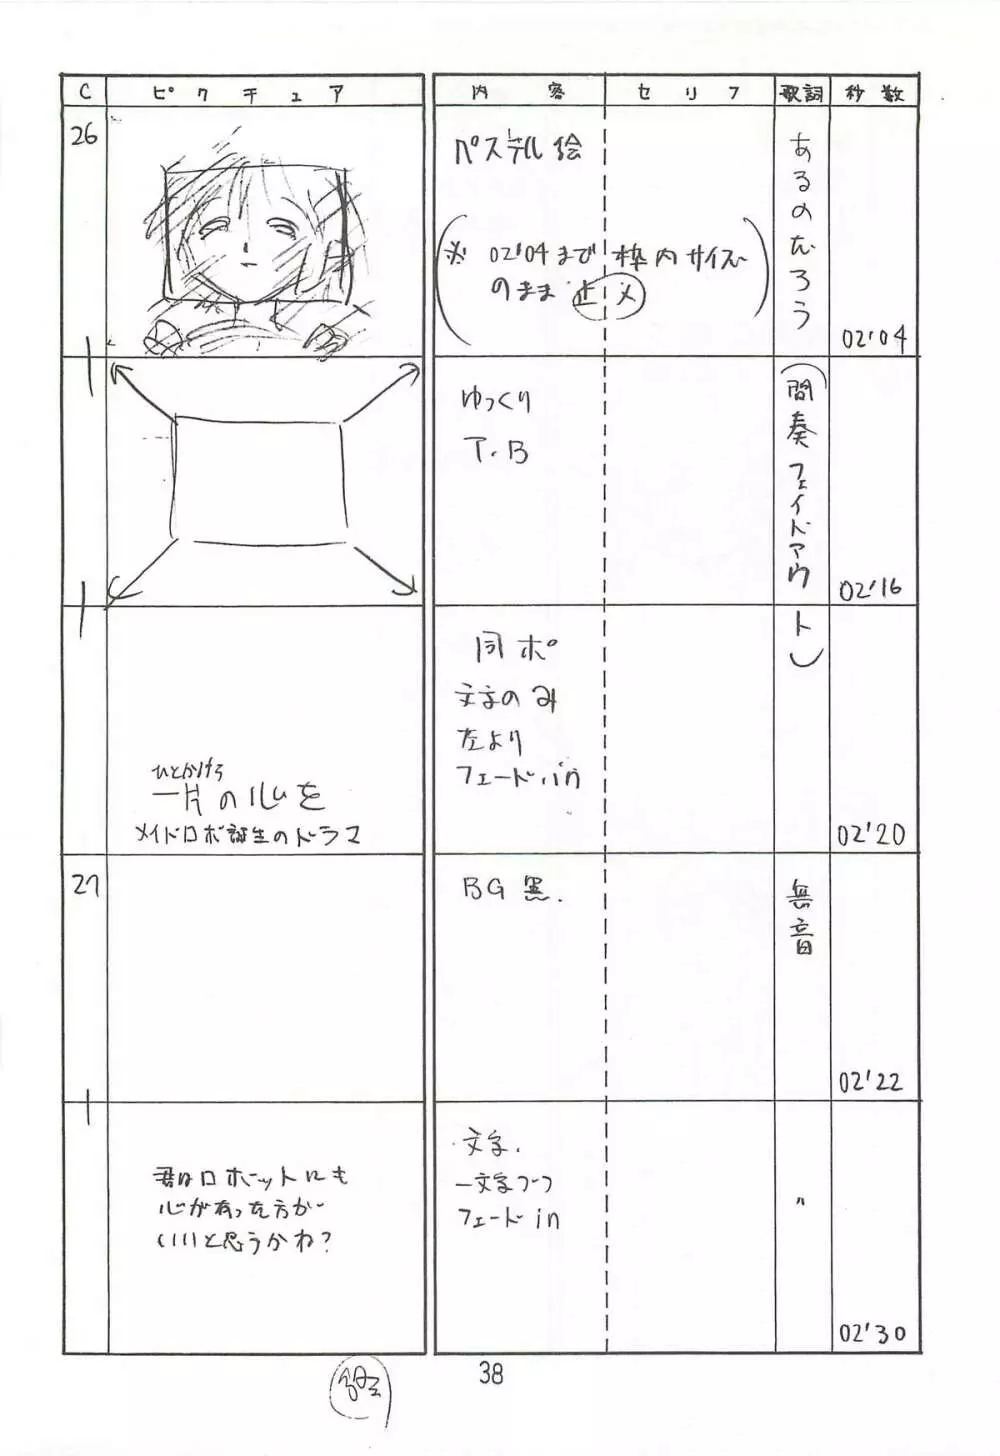 C ピクチュア 内容 セリフ 歌詞 秒数
26
パステル絵
(※ 02'04まで 枠内サイズ
のまま 止メ)
あるのだろう
02'04
ゆっくり
T.B
(間奏フェイドアウト)
02'16
同ポ
文字のみ
左より
フェードイン
ひとかけら
一片の心を
メイドロボ誕生のドラマ
02'20
27
BG 黒.
無音
02'22
君はロボットにも
心が有った方が
いいと思うかね?
文字.
一文字づつ
フェード in
〃
02'30
38